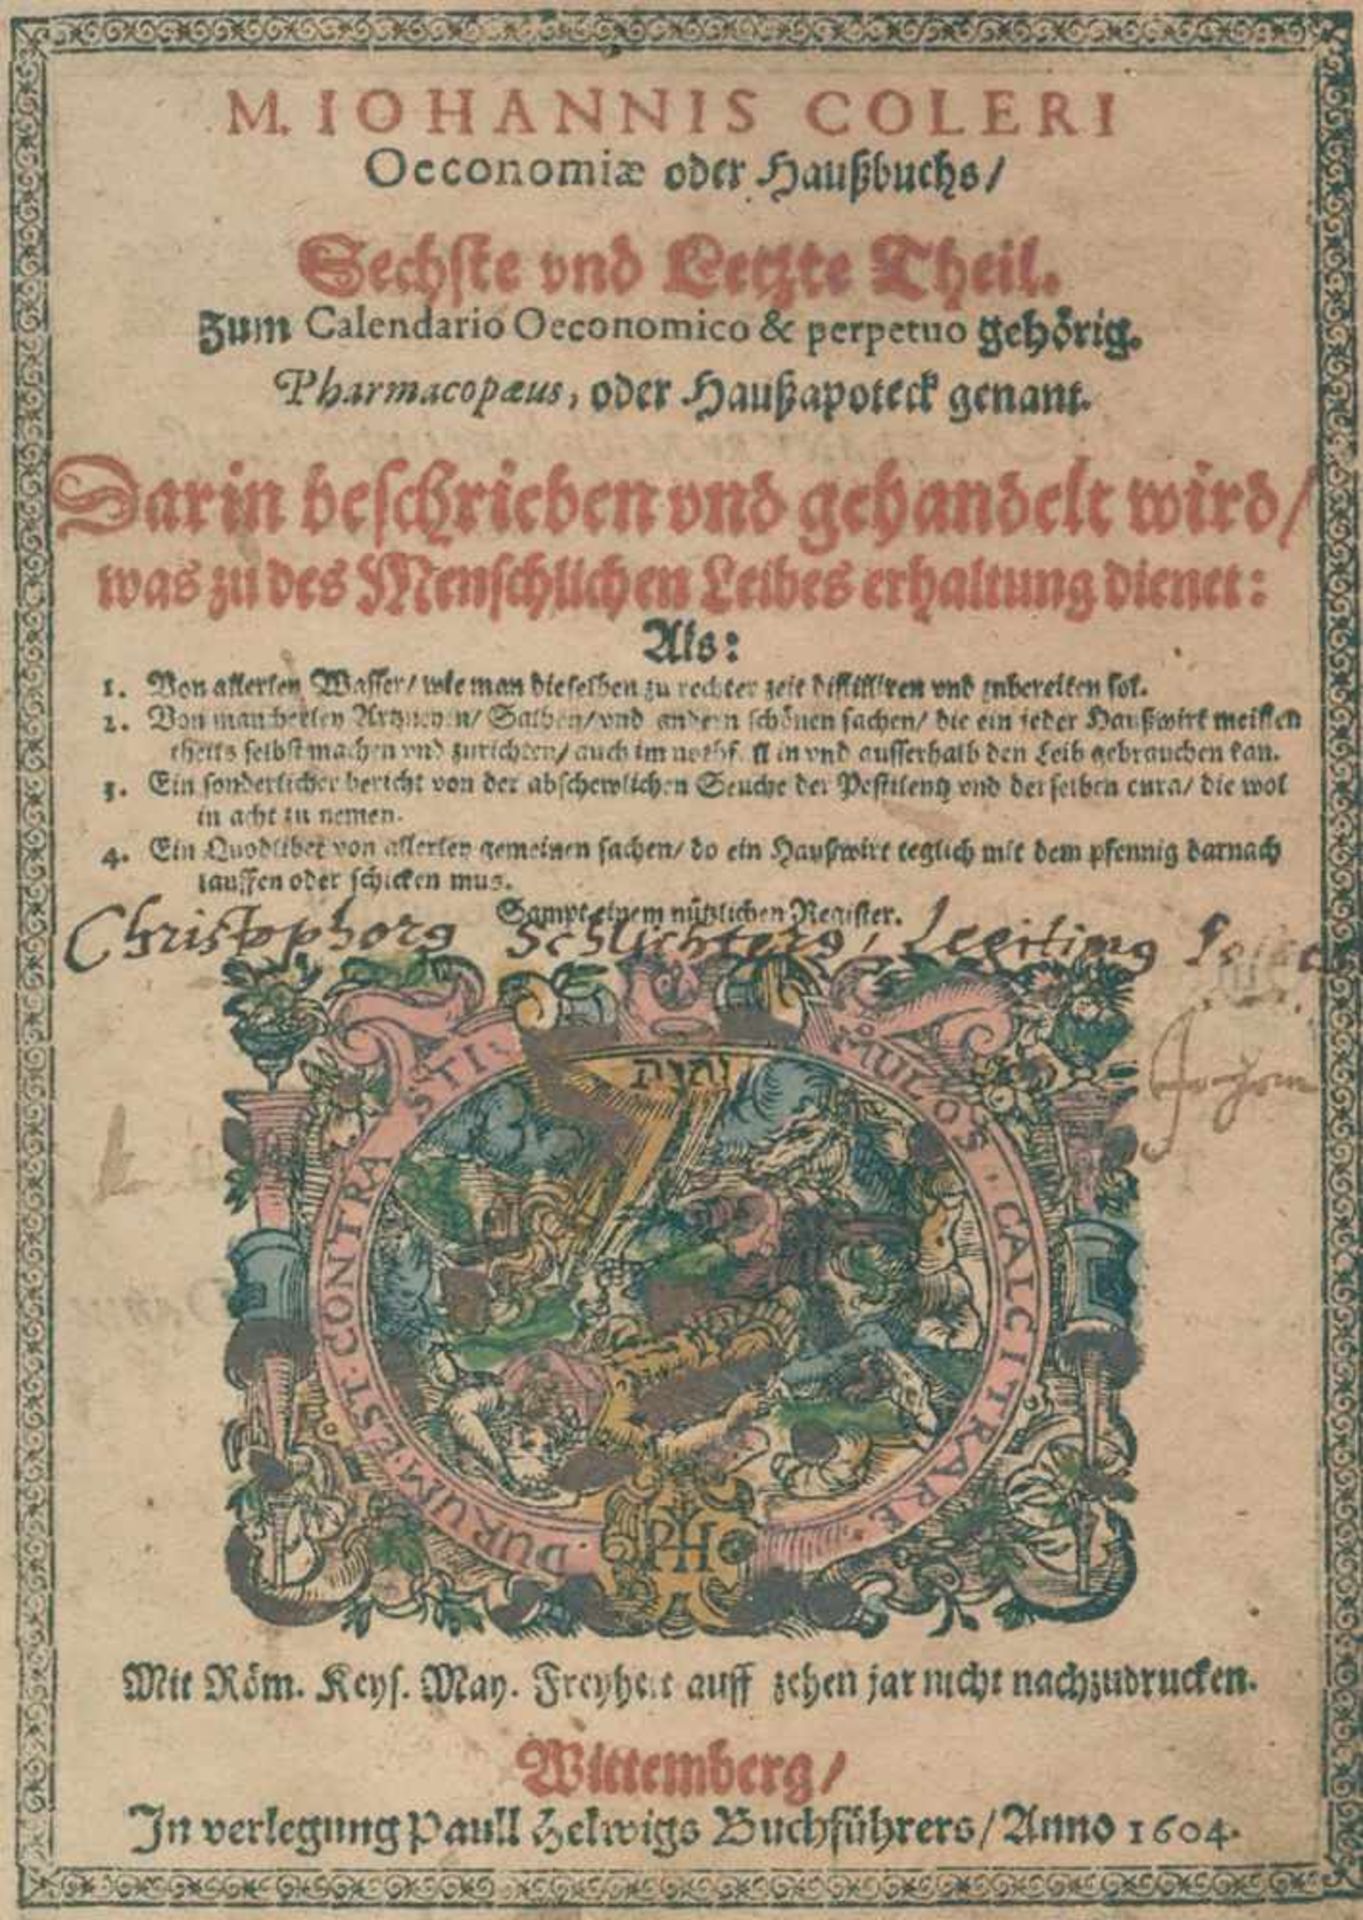 M. IOHANNIS COLERI
Oeconomiæ oder Haußbuchs/
Sechste vnd Letzte Theil.
Zum Calendario Oeconomico & perpetuo gehörig.
Pharmacopæus, oder Haußapoteck genant.
Darin beschrieben vnd gehandelt wird/
was zu des Menschlichen Leibes erhaltung dienet:
Als:
1. Von allerley Wasser/ wie man dieselben zu rechter zeit distilliren vnd zubereiten sol.
2. Von mancherley Artzneyen/ Salben/ vnd andern schönen sachen/ die ein jeder Haußwirt meisten
theils selbst machen vnd zurichten/ auch im nothfall in vnd ausserhalb den Leib gebrauchen kan.
3. Ein sonderlicher bericht von der abschewlichen Seuche der Pestilentz vnd derselben cura/ die wol
in acht zu nemen.
4. Ein Quodlibet von allerley gemeinen sachen/ do ein Haußwirt teglich mit dem pfennig darnach
lauffen oder schicken mus.
Sampt einem nützlichen Register.
Christophorg Schlichterg, Legitimg
יהוה
DURUM. EST. CONTRA STIMULOS. CALCITRARE.
PH
Mit Röm. Keys. May. Freyheit auff zehen jar nicht nachzudrucken.
Wittemberg/
In verlegung Paull Helwigs Buchführers/ Anno 1604.